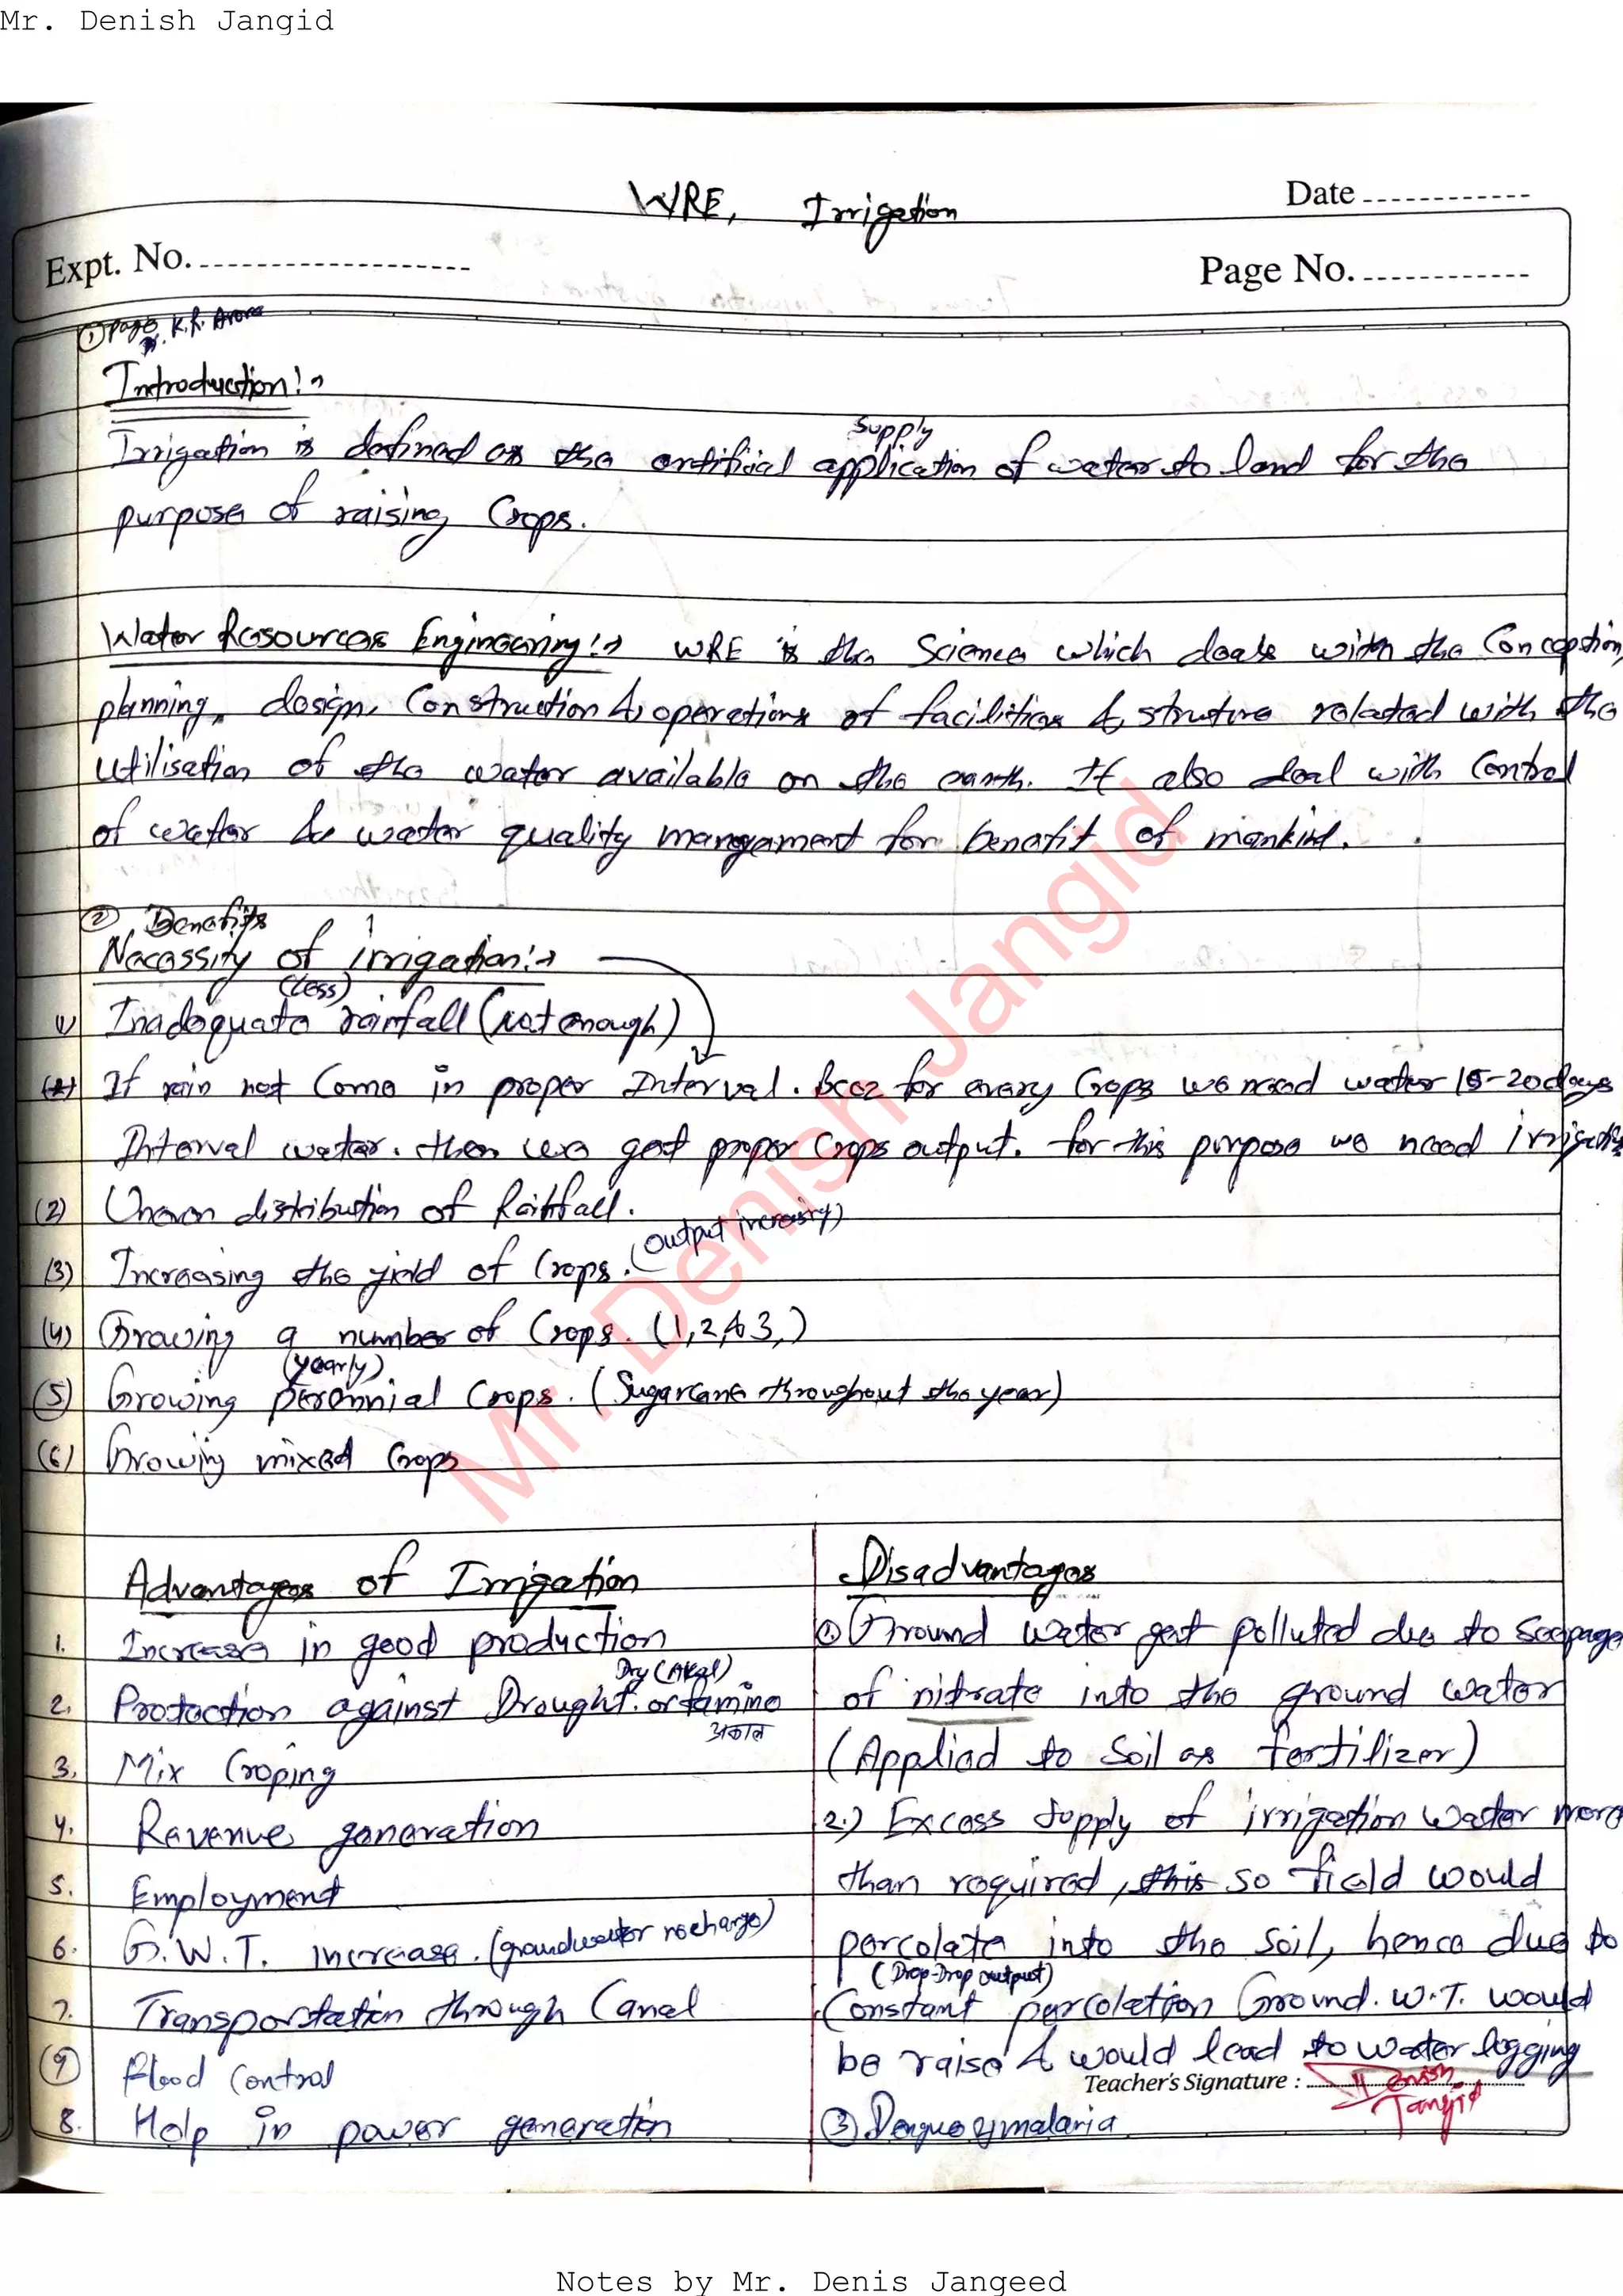 Mr. Denish Jangid
WRE, Irrigation
Date
Expt. No.
Page No.
① Page K.R. Arora
Introduction:→
Supply
Irrigation is defined as the artificial application of water to land for the
purpose of raising Crops.
Water Resources Engineering:→ WRE is the Science which deals with the Conception,
planning, design, Construction & operations of facilities & struture related with the
utilisation of the water available on the earth. It also deal with Control
of water & water quality mangament for benefit of mankind.
② Benefits
Necessity of irrigation:→
(Less)
1) Inadequate rainfall (not enough)
If rain not Come in proper Interval. Bcoz for every Crops we need water 15-20 days
Interval water. then we get proper Crops output. for this purpose we need irrigation
(2) Uneven distribution of Rainfall.
(3) Increasing the yield of Crops. (output increasing)
(4) Growing a number of Crops. (1,2,&3,)
(yearly)
(5) Growing perennial Crops. (Sugarcane throughout the year)
(6) Growing mixed Crops
Advantages of Irrigation
1. Increase in good production
Dry (Akal)
2. Protection against Drought. or famine
अकाल
3. Mix Croping
4. Revenue generation
5. Employment
6. G.W.T. increase. (groundwater recharge)
7. Transportation through Canal
(9) Flood Control
8. Help in power generation
Disadvantages
① Ground water get polluted due to Seepage
of nitrate into the ground water
(Applied to Soil as fertilizer)
2.) Excess Supply of irrigation water more
than required, this so field would
percolate into the soil, hence due to
(Drop-Drop output)
Constant percolation Ground. W.T. would
be raise & would lead to water logging
Teacher's Signature : Denish
Jangid
③ Dengue & malaria
Mr. Denish Jangid
Notes by Mr. Denis Jangeed